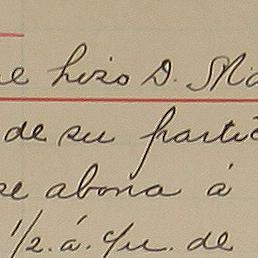 e hizo D. Ma
de su parti
se abona á
1/2. á. qu. de